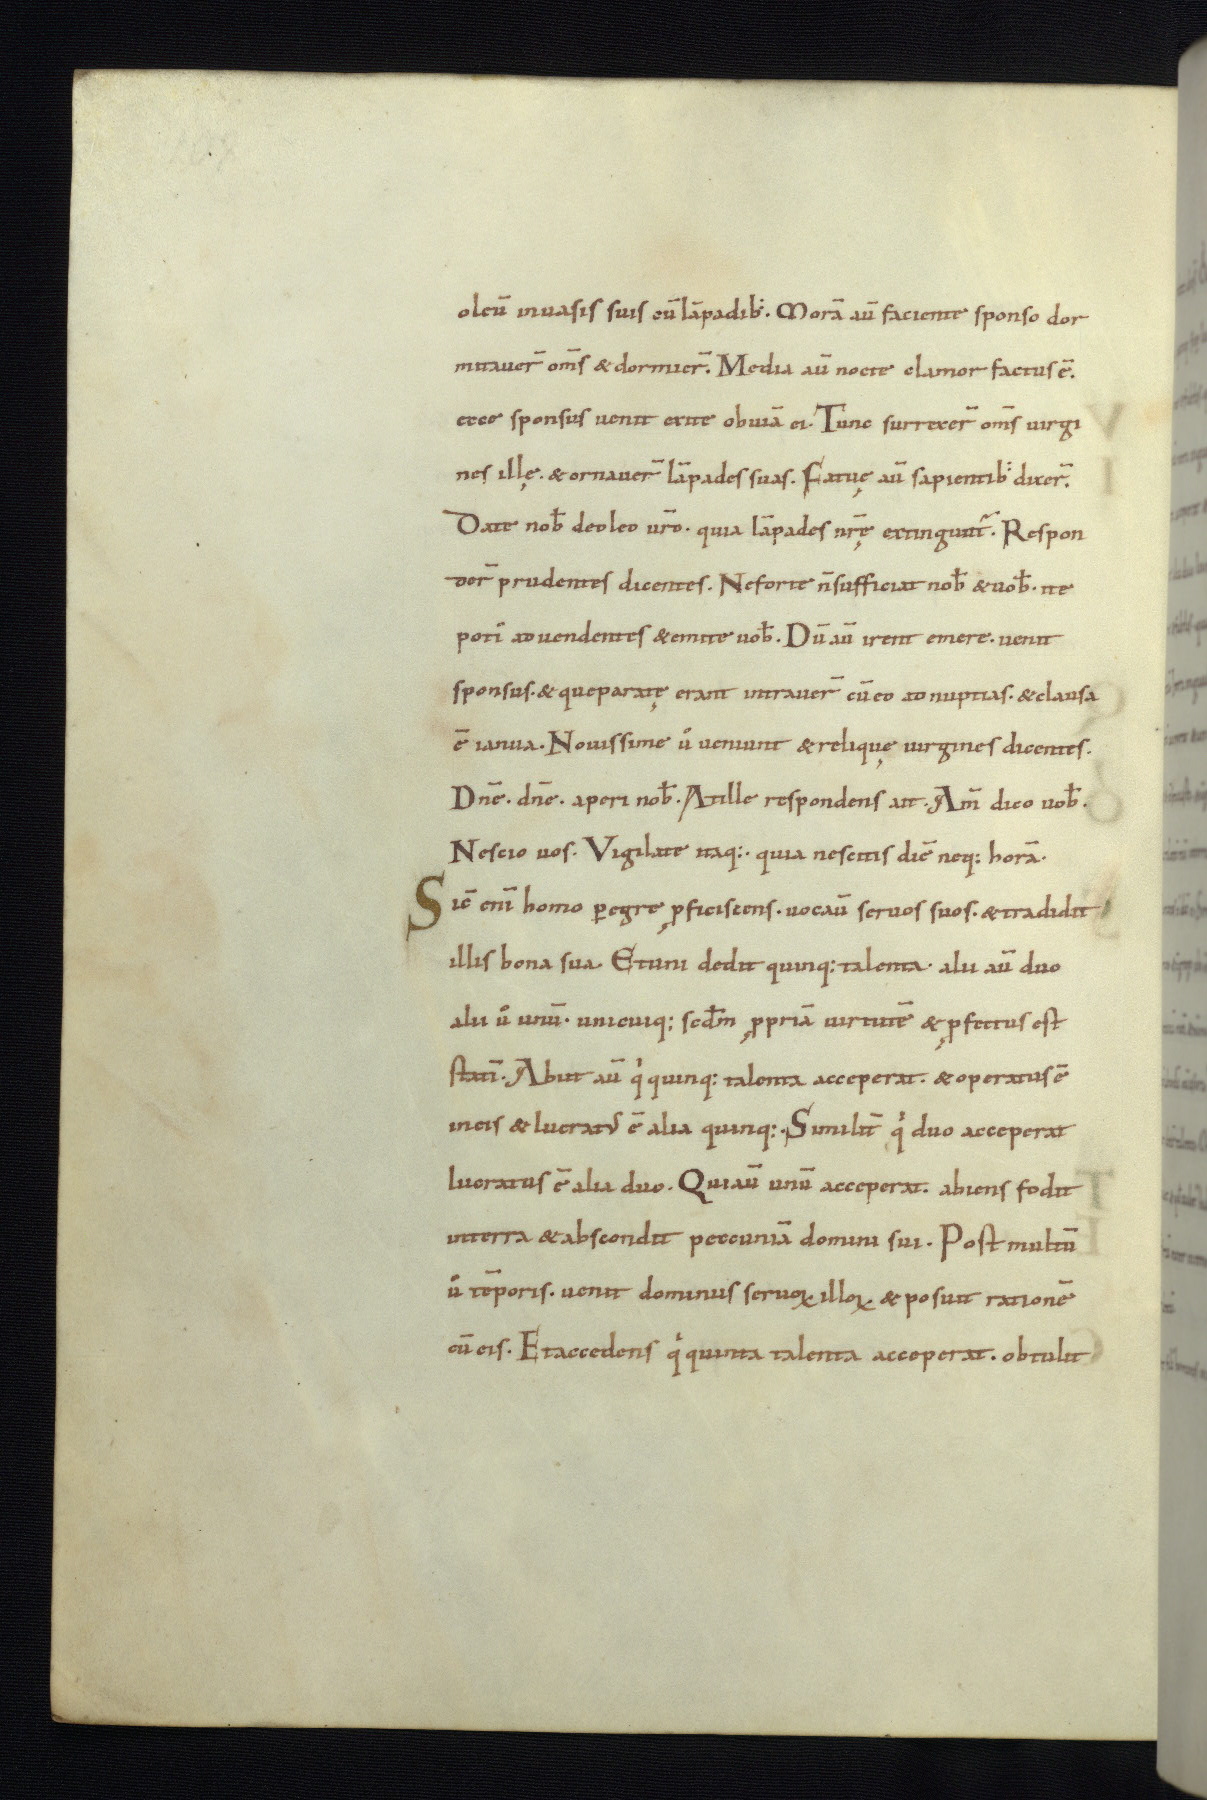 oleū inuasis suis cū lāpadib;. Morā aū faciente sponso dor
mitauer̄ om̄s & dormier̄. Media aū nocte clamor factus ē.
ecce sponsus uenit exite obuiā ei. Tunc surrexer̄ om̄s uirgi
nes illę. & ornauer̄ lāpades suas. Fatuę aū sapientib; dixer̄.
Date nob̄ deoleo ur̄o. quia lāpades nr̄ę extingunt̄. Respon
der̄ prudentes dicentes. Neforte n̄ sufficiat nob̄ & uob̄. ite
poti᷒ ad uendentes & emite uob̄. Dū aū irent emere. uenit
sponsus. & que paratę erant intrauer̄ cū eo ad nuptias. & clausa
ē ianua. Nouissime ů ueniunt & reliquę uirgines dicentes.
Dn̄e. dn̄e. aperi nob̄. Atille respondens ait. Am̄ dico uob̄.
Nescio uos. Vigilate itaq;. quia nescitis diē neq; horā.
Sic̄ eni᷒ homo ꝑegre ꝓficiscens. uocau᷒ seruos suos. & tradidit
illis bona sua. Etuni dedit quinq; talenta. alii aū duo
alii ů unū. unicuiq; scdm̄ ꝓpriā uirtutē & ꝓfectus est
stati᷒. Abiit aū qͥ quinq; talenta acceperat. & operatus ē
ineis & lucratus ē alia quinq;. Similit̄ qͥ duo acceperat
lucratus ē alia duo. Quiaū unū acceperat. abiens fodit
interra & abscondit peccuniā domini sui. Post multū
ů tēporis. uenit dominus seruoꝝ illoꝝ & posuit rationē
cū eis. Et accedens qͥ quinta talenta acceperat. obtulit